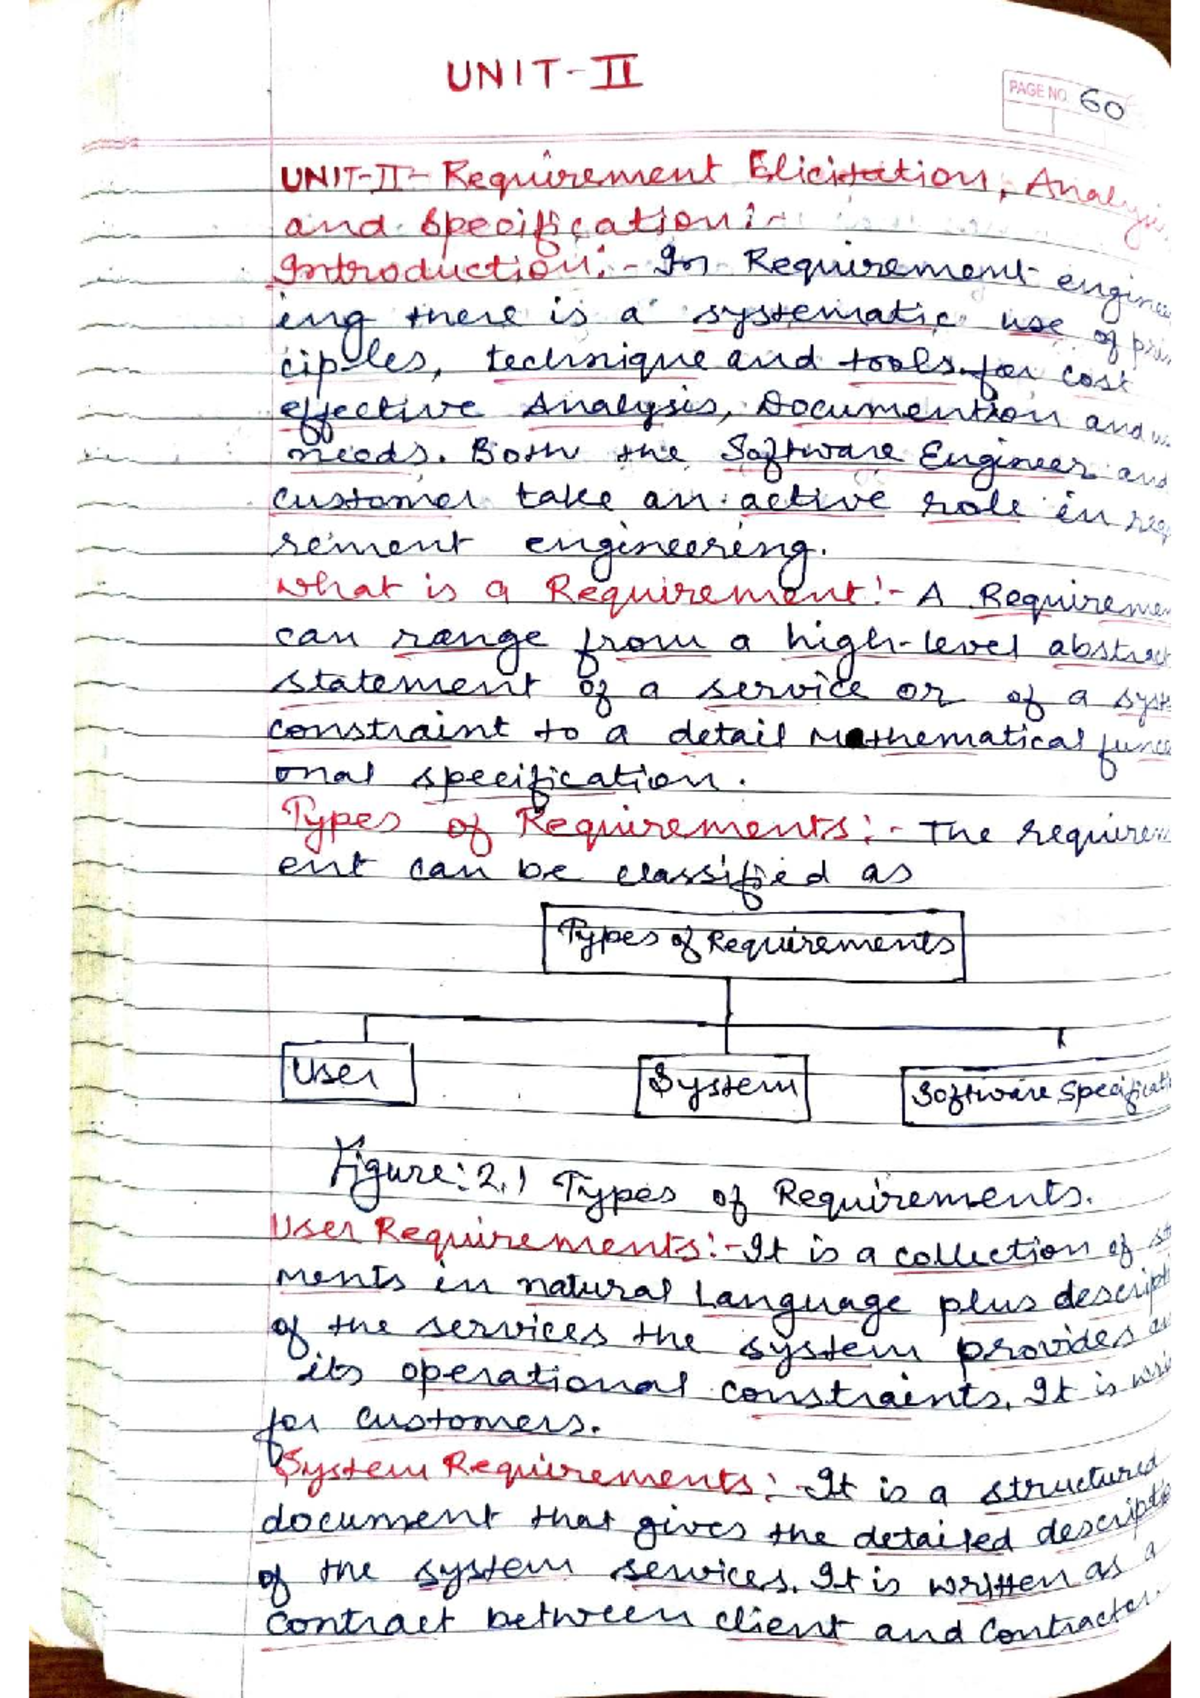 UNIT-II
PAGE NO. 60
UNIT-II- Requirement Elicitation, Analysis
and Specification:-
Introduction:- In Requirement enginee
ing there is a systematic use of prin
ciples, technique and tools for cost
effective Analysis, Documention and
needs. Both the Software Engineer and
customer take an active role in req
rement engineering.
What is a Requirement:- A Requireme
can range from a high-level abstract
statement of a service or of a syst
constraint to a detail Mathematical func
onal specification.
Types of Requirements:- The requirem
ent can be classified as
Types of Requirements
User
System
Software Specificati
Figure: 2.1 Types of Requirements.
User Requirements:- It is a collection of st
ments in natural Language plus descript
of the services the system provides an
its operational constraints. It is wri
for customers.
System Requirements:- It is a structured
document that gives the detailed descriptio
of the system services. It is written as a
Contract between client and Contractor.